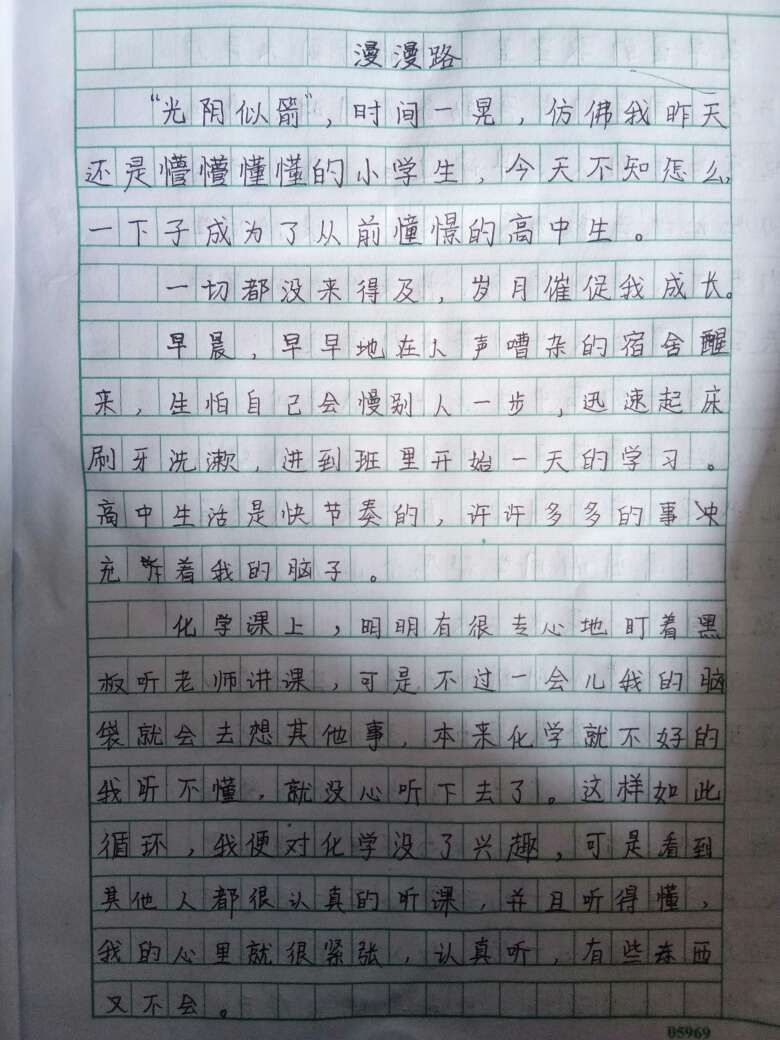 漫漫路
“光阴似箭”，时间一晃，仿佛我昨天
还是懵懵懂懂的小学生，今天不知怎么
一下子成为了从前憧憬的高中生。
一切都没来得及，岁月催促我成长。
早晨，早早地在人声嘈杂的宿舍醒
来，生怕自己会慢别人一步，迅速起床
刷牙洗漱，进到班里开始一天的学习。
高中生活是快节奏的，许许多多的事冲
充斥着我的脑子。
化学课上，明明有很专心地盯着黑
板听老师讲课，可是不过一会儿我的脑
袋就会去想其他事，本来化学就不好的
我听不懂，就没心听下去了。这样如此
循环，我便对化学没了兴趣，可是看到
其他人都很认真的听课，并且听得懂，
我的心里就很紧张，认真听，有些东西
又不会。
05969